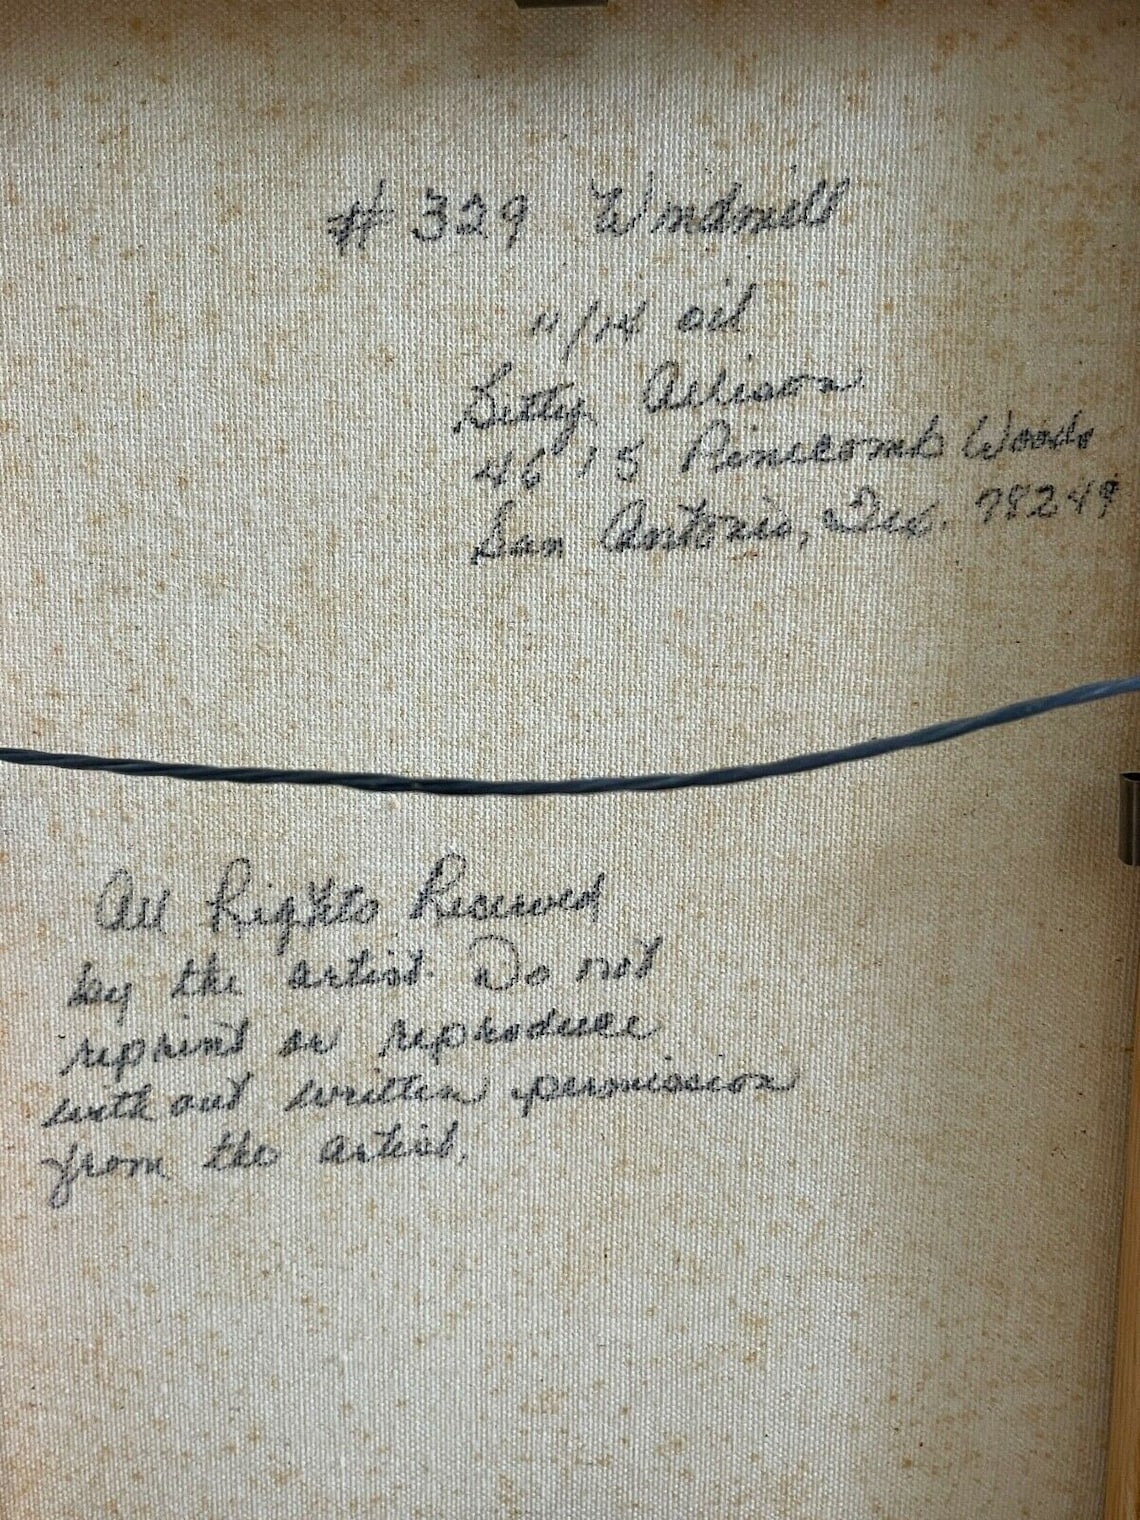 # 329 Windmill
11/14 oil
Betty Allison
4615 Pinecomb Woods
San Antonio, Tex. 78249
All Rights Reserved
by the artist. Do not
reprint or reproduce
with out written permission
from the artist.